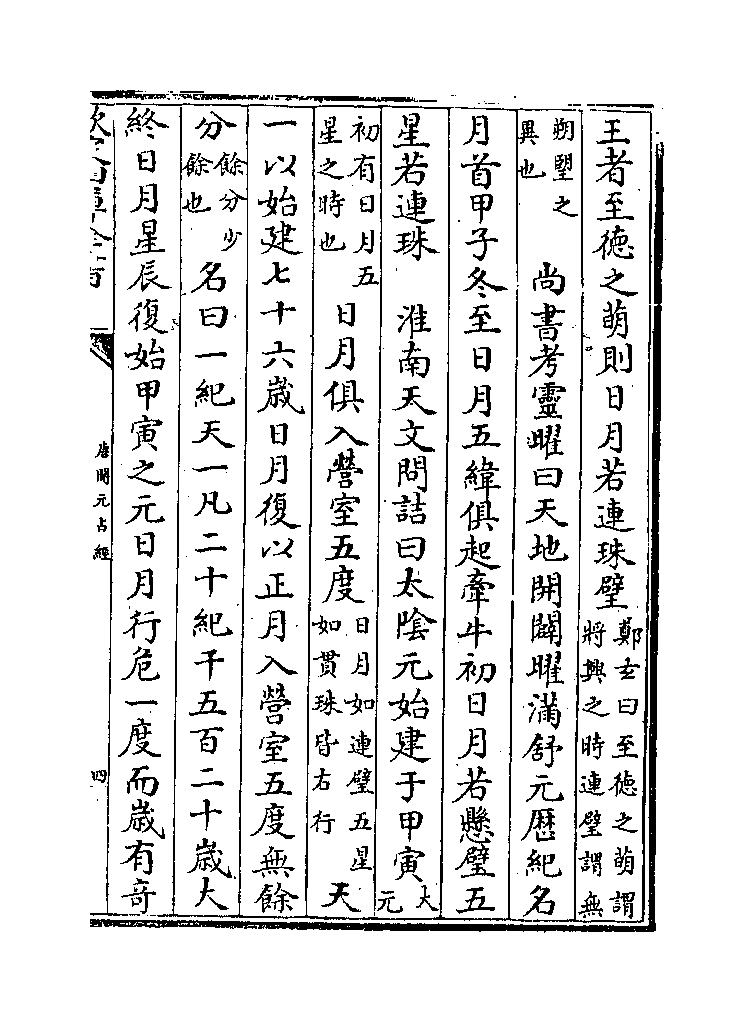 王者至德之萌則日月若連珠璧鄭玄曰至德之萌謂將興之時連璧謂無
朔朢之異也　尚書考靈曜曰天地開闢曜滿舒元厯紀名
月首甲子冬至日月五緯俱起牽牛初日月若懸璧五
星若連珠　淮南天文問詰曰太陰元始建于甲寅大元
初有日月五星之時也　日月俱入營室五度日月如連璧五星如貫珠皆右行天
一以始建七十六歲日月復以正月入營室五度無餘
分餘分少餘也　名曰一紀天一凡二十紀千五百二十歲大
終日月星辰復始甲寅之元日月行危一度而歲有奇
唐開元占經
四